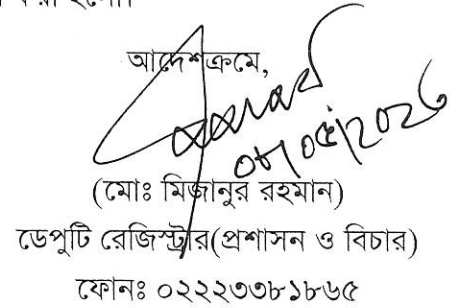 আদেশক্রমে,
০৮/০৫/২০২৬
(মোঃ মিজানুর রহমান)
ডেপুটি রেজিস্ট্রার(প্রশাসন ও বিচার)
ফোনঃ ০২২২৩৩৮১৮৬৫